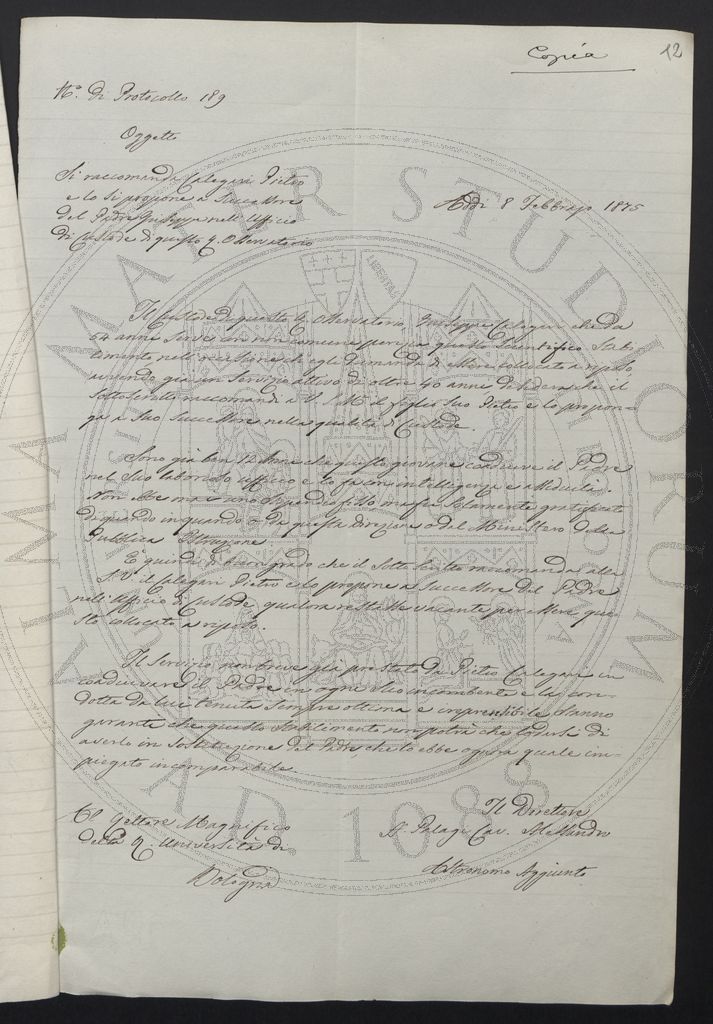 Copia
12
N.° di Protocollo 189
Oggetto
Si raccomanda Calegari Pietro
e lo si propone a Successore
del Padre Giuseppe nell'Ufficio
di Custode di questo R. Osservatorio
Addì 8 Febbrajo 1875
Il Custode di questo R. Osservatorio, Giuseppe Calegari che da
54 anni serve con non comune perizia questo Scientifico Stabi-
limento nell'occasione ch'egli domanda di essere collocato a riposo,
avendo già un servizio attivo di oltre 40 anni desidera che il
sottoscritto raccomandi a V. S. Ill. il figlio suo Pietro e lo propon-
ga a suo successore nella qualità di Custode.
Sono già ben 12 anni che questo giovane coadiuva il Padre
nel suo laborioso ufficio e lo fa con intelligenza e assiduità.
Non ebbe mai uno stipendio fisso ma fu solamente gratificato
di quando in quando o da questa direzione o dal Ministero della
Pubblica Istruzione.
È quindi di buon grado che il sottoscritto raccomanda alla
S. V. il Calegari Pietro e lo propone a Successore del Padre
nell'Ufficio di Custode qualora restasse vacante per essere que-
sto collocato a riposo.
Il servizio non breve già prestato da Pietro Calegari in
coadiuvare il Padre in ogni suo incombente e la con-
dotta da lui tenuta sempre ottima e irreprensibile danno
garanzia che questo Stabilimento non potrà che lodarsi di
averlo in sostituzione del Padre, che lo ebbe ognora quale im-
piegato incomparabile.
Al Rettore Magnifico
della R. Università di
Bologna
Il Direttore
F. Palagi Cav. Alessandro
Astronomo Aggiunto
ALMA MATER STUDIORUM
LIBERTAS
A.D. 1088